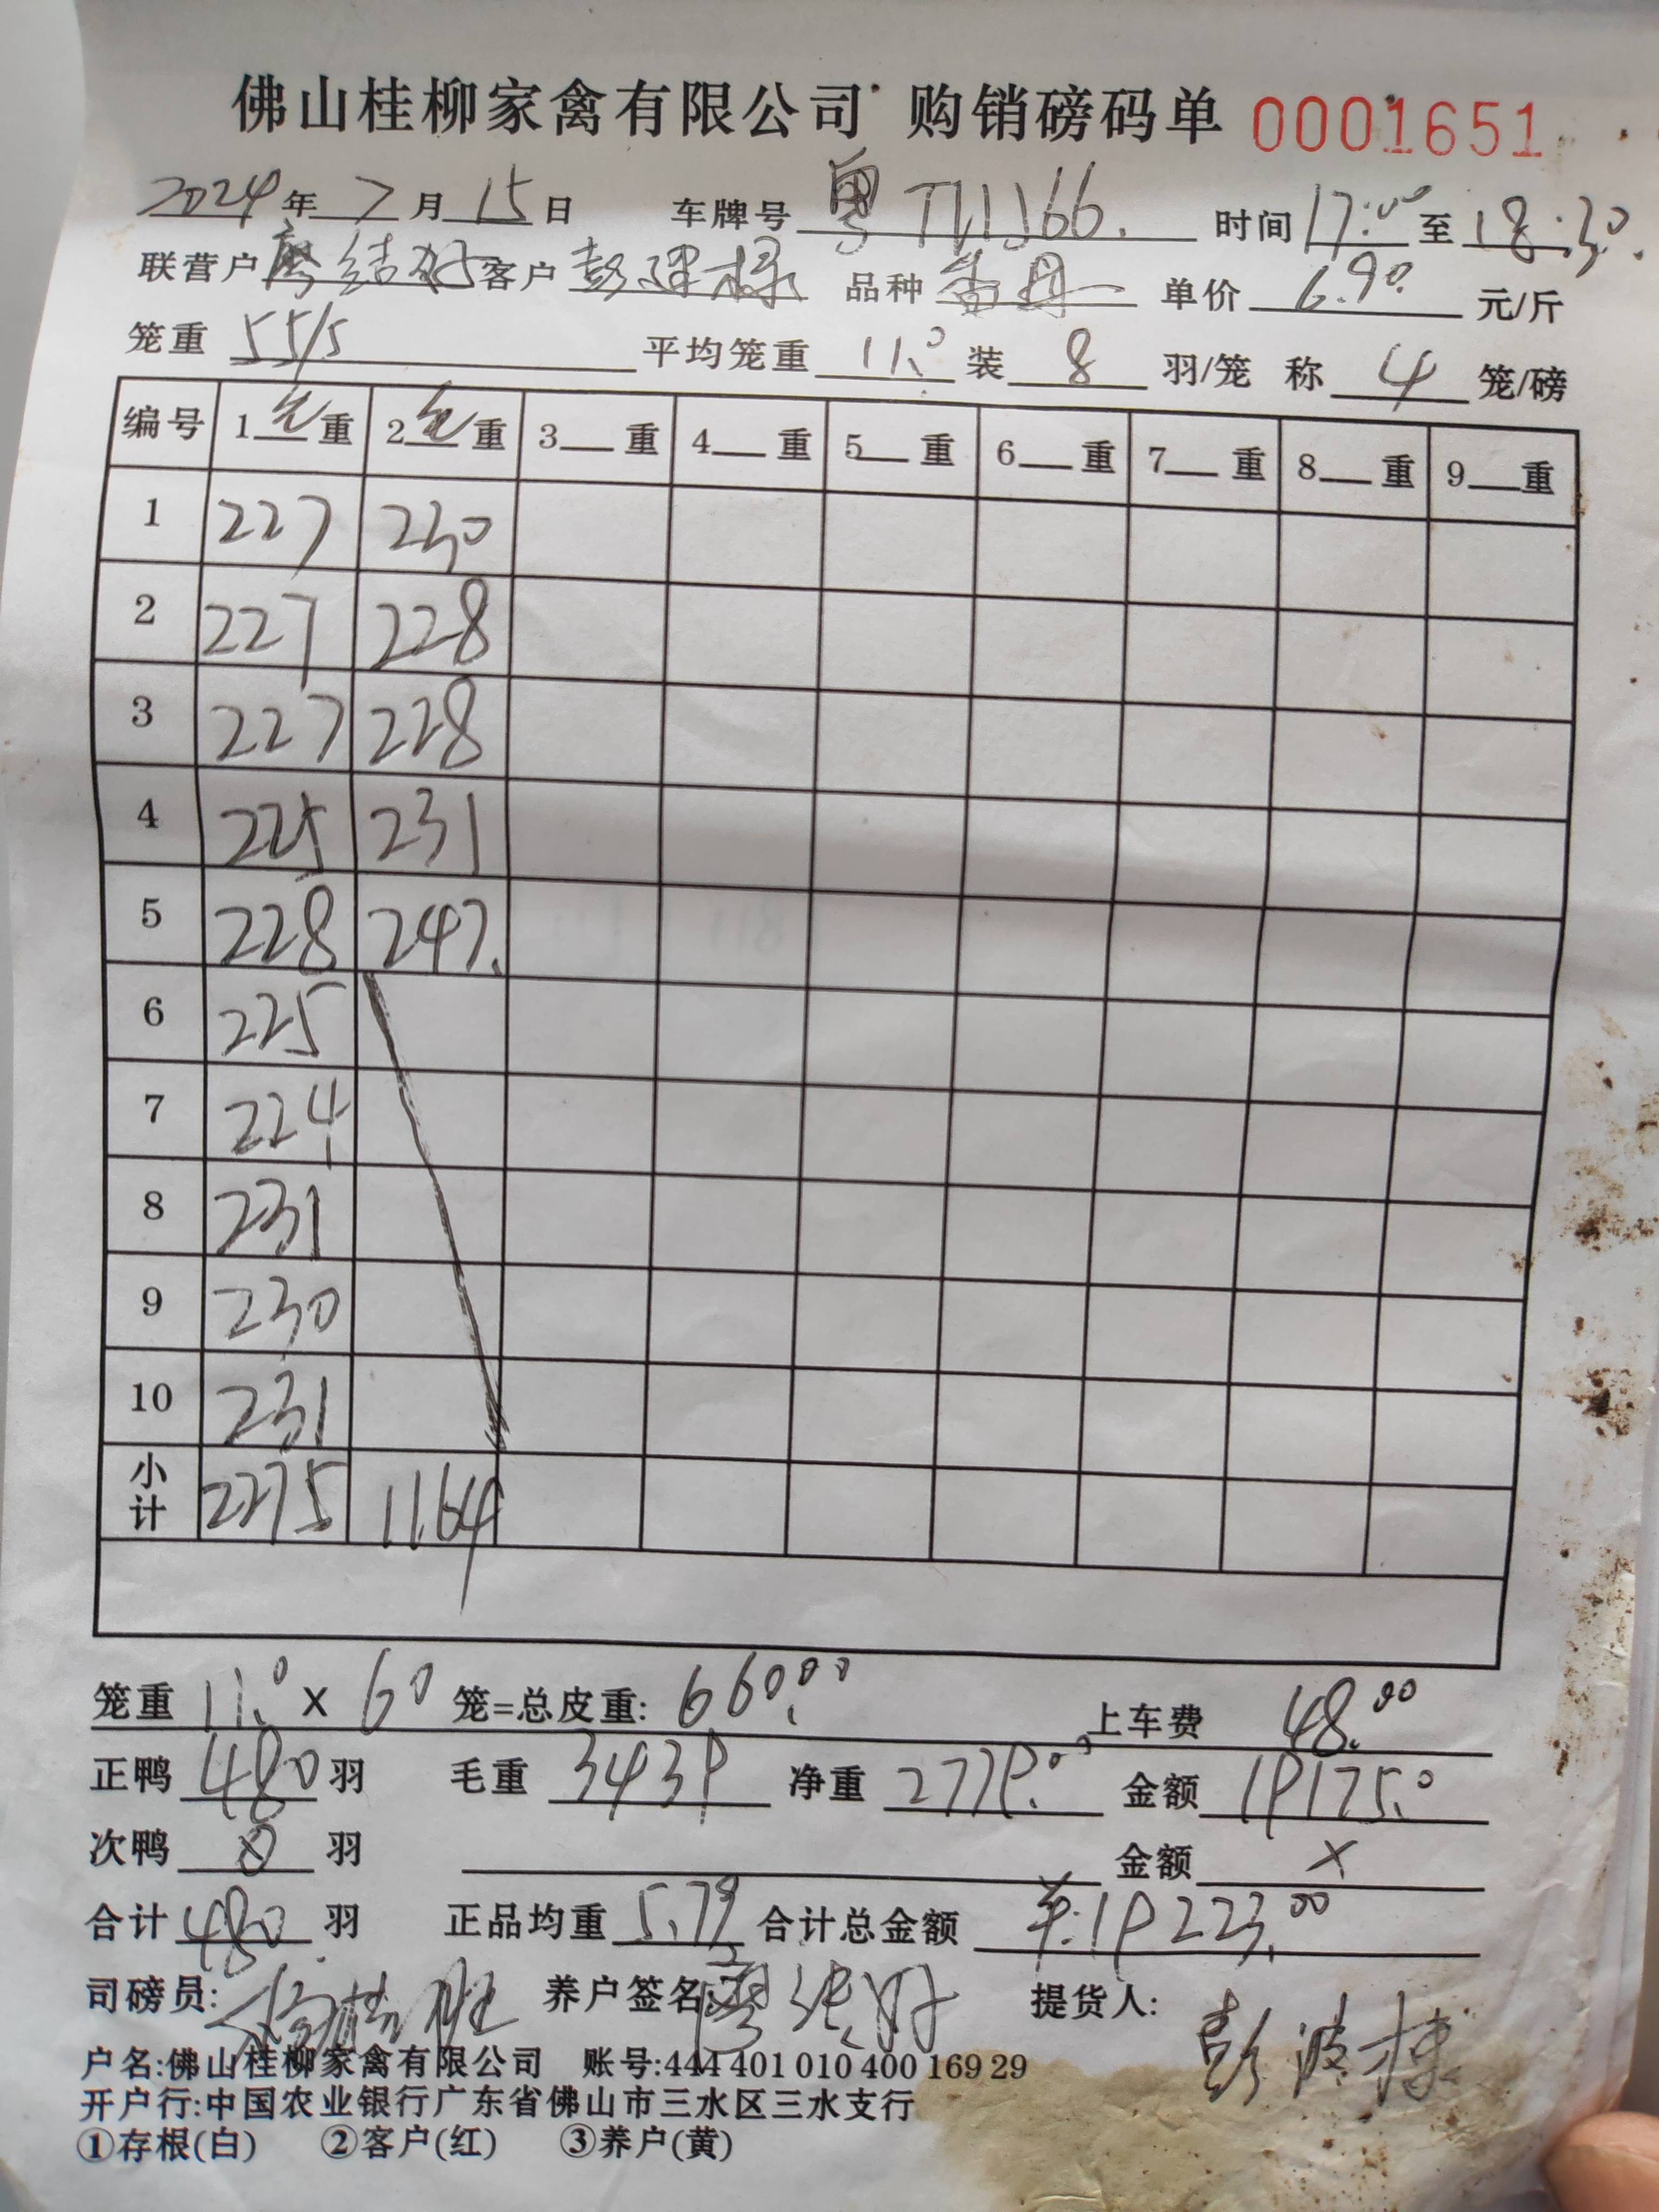 佛山桂柳家禽有限公司 购销磅码单 0001651
2024年7月15日 车牌号 粤 时间17:00至18:30.
联营户 廖结好 客户 彭 品种 单价 6.90 元/斤
笼重 55/5 平均笼重 11.0 装 8 羽/笼 称 4 笼/磅
编号 1毛重 2毛重 3__重 4__重 5__重 6__重 7__重 8__重 9__重
1 227 230
2 227 228
3 227 228
4 225 231
5 228 247.
6 225
7 224
8 231
9 230
10 231
小计 2275 1164
笼重 11.0 X 60 笼=总皮重: 660.00 上车费 48.00
正鸭 480 羽 毛重 3439 净重 2779.0 金额 19175.0
次鸭 0 羽 金额 ×
合计 480 羽 正品均重 5.79 合计总金额 ¥:19223.00
司磅员: 养户签名 廖结好 提货人: 彭
户名:佛山桂柳家禽有限公司 账号:444 401 010 400 169 29
开户行:中国农业银行广东省佛山市三水区三水支行
①存根(白) ②客户(红) ③养户(黄)